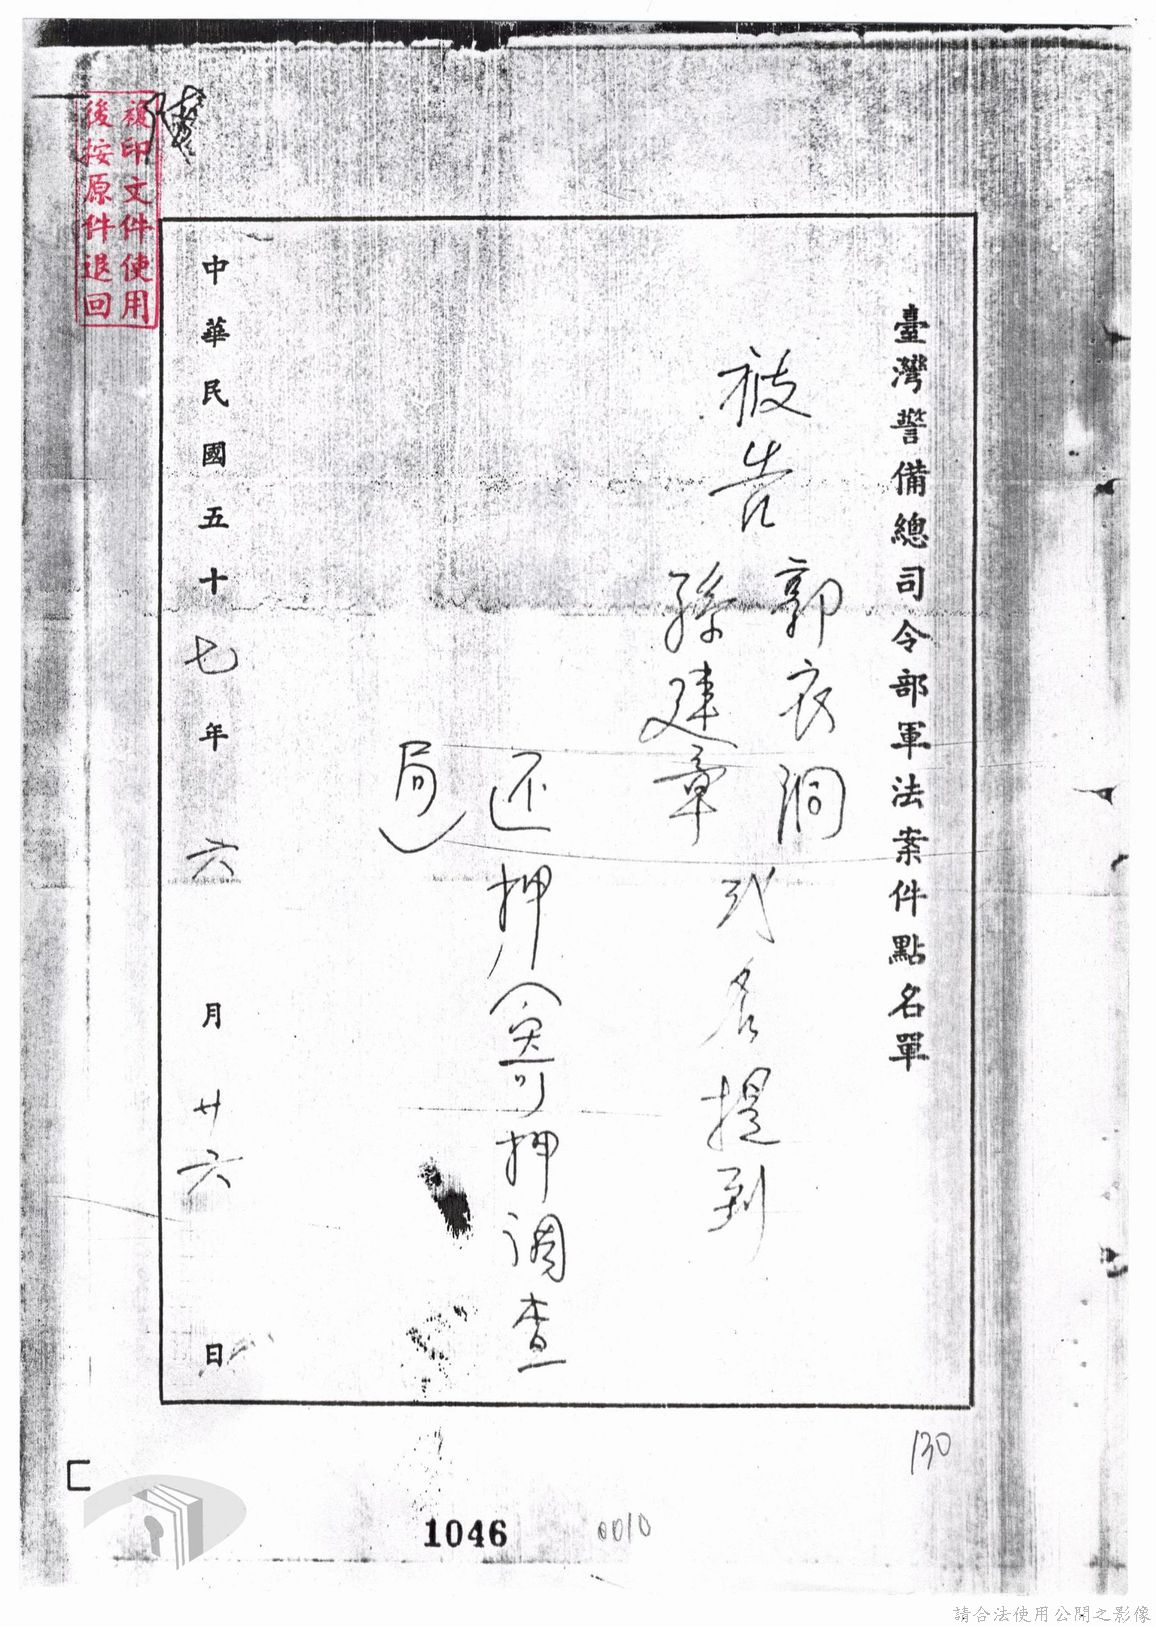 臺灣警備總司令部軍法案件點名單
被告
郭衣洞
孫建章
弍名提到
还押(寄押調查
局)
中華民國五十七年六月廿六日
複印文件使用
後按原件退回
130
1046
0010
請合法使用公開之影像